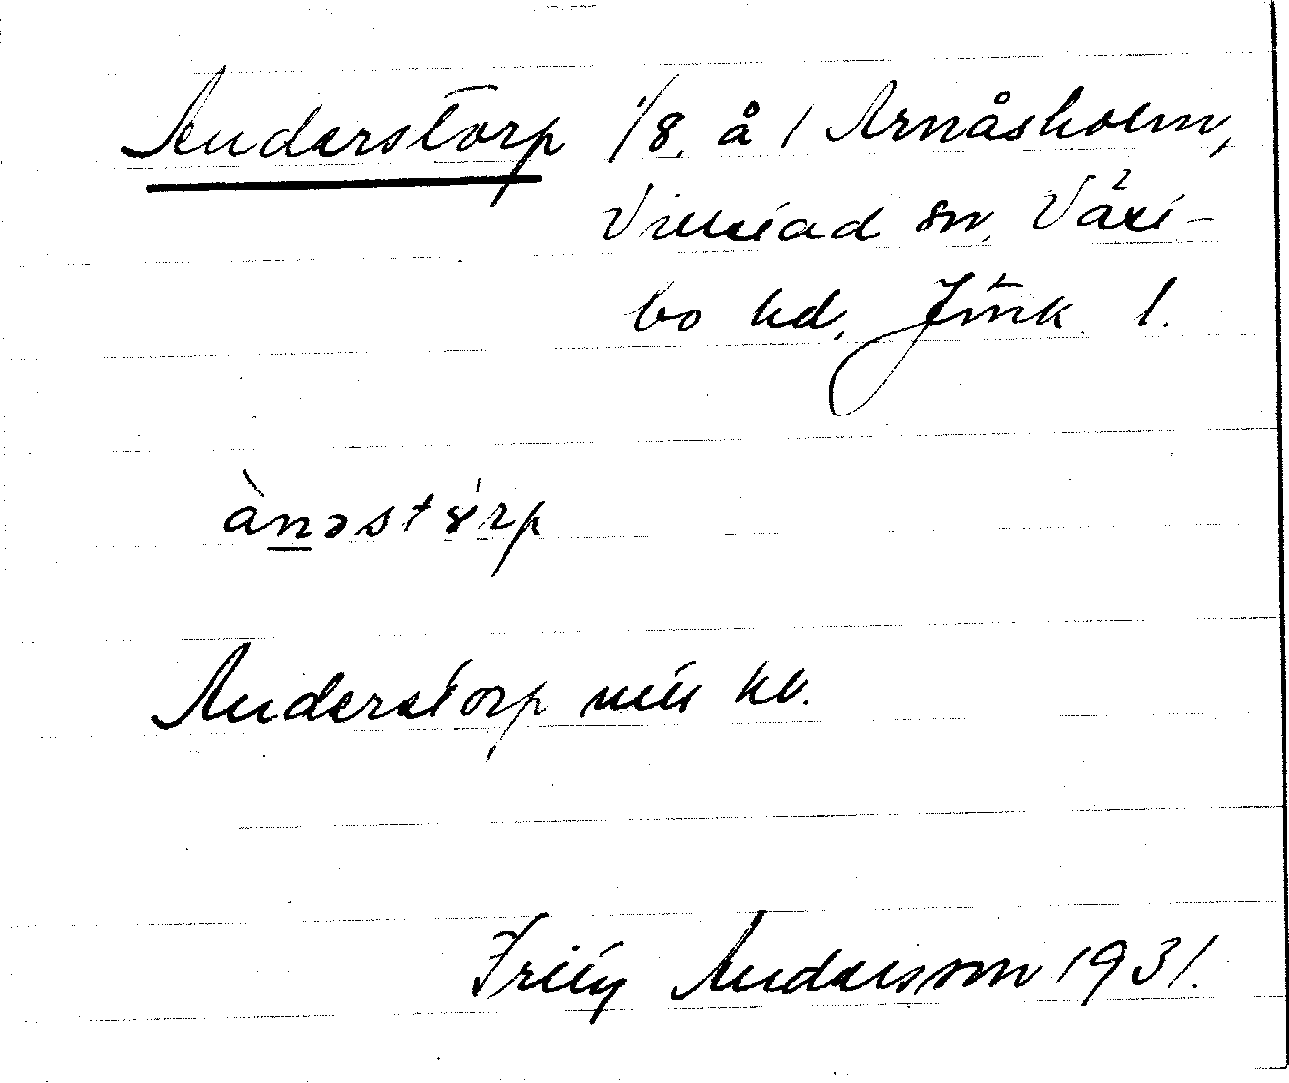 Anderstorp 1/8 å 1 Arnåsholm,
Villstad sn, Västbo hd, Jönk l.
ànəstɤ́rp
Anderstorp mtl kb.
Fritz Andersson 1931.